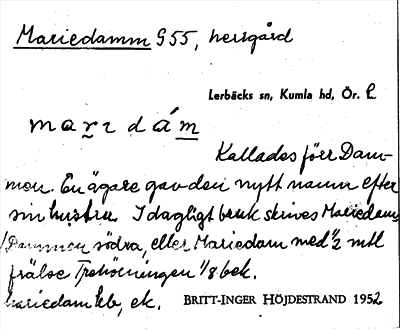 Mariedamm G55, herrgård
Lerbäcks sn, Kumla hd, Ör. L
marı dám
Kallades förr Dam-
mon. En ägare gav den nytt namn efter
sin hustru. I dagligt bruk skrives Mariedam
/Dammon södra, eller Mariedam med ½ mtl
frälse 1/8 bek.
Mariedam kb, ek. BRITT-INGER HÖJDESTRAND 1952